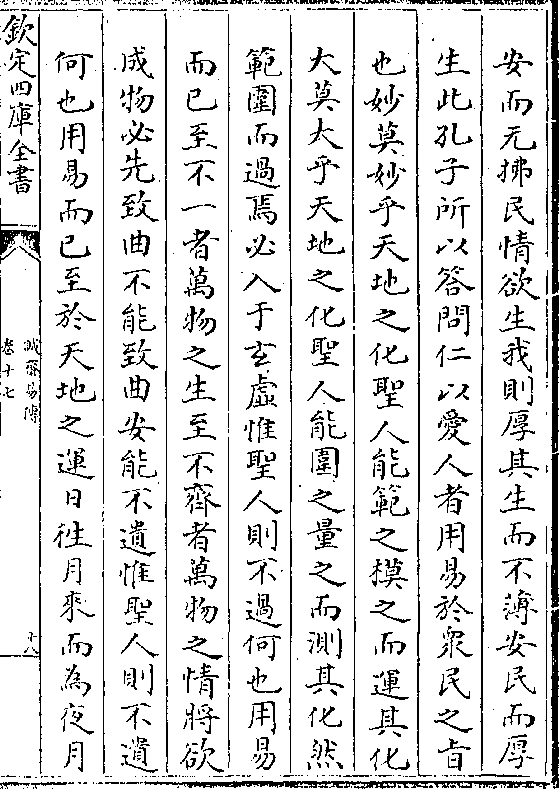 安而无拂民情欲生我則厚其生而不薄安民而厚
生此孔子所以答問仁以愛人者用易於衆民之旨
也妙莫妙乎天地之化聖人能範之模之而運其化
大莫大乎天地之化聖人能圍之量之而測其化然
範圍而過焉必入于玄虛惟聖人則不過何也用易
而已至不一者萬物之生至不齊者萬物之情將欲
成物必先致曲不能致曲安能不遺惟聖人則不遺
何也用易而已至於天地之運日往月來而為夜月
欽定四庫全書
誠齋易傳
卷十七
十八